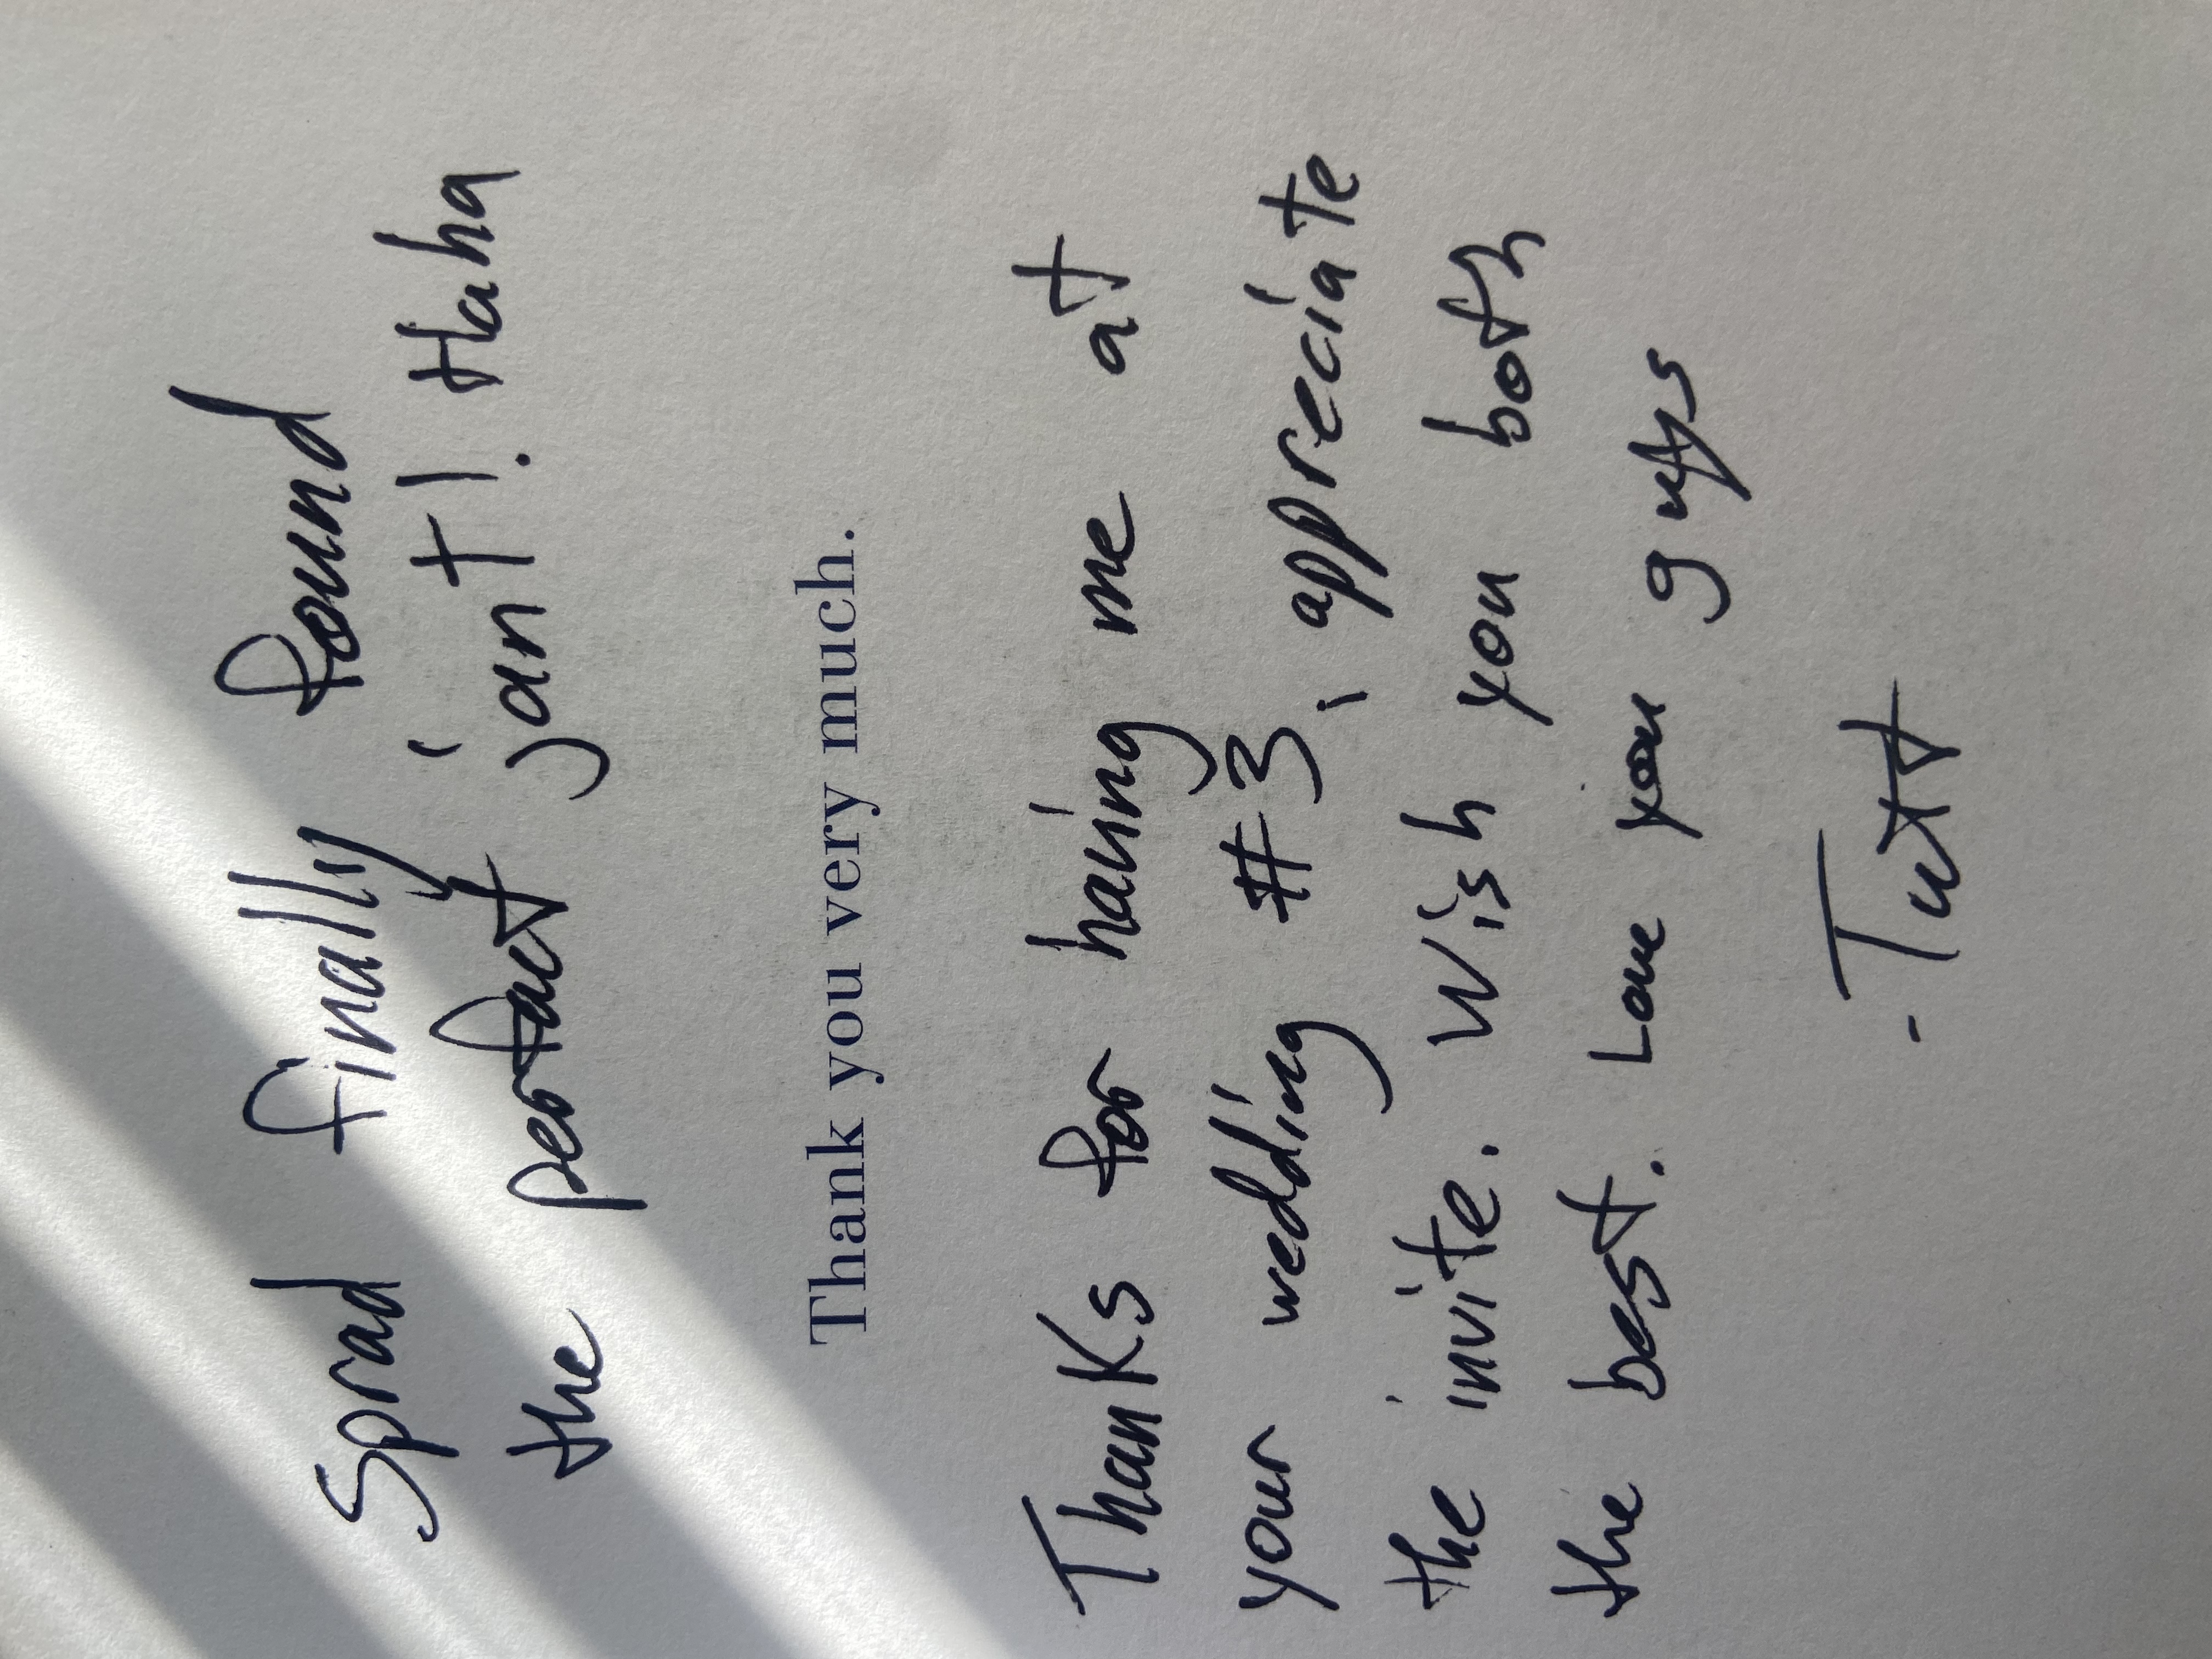 Sprad finally found
the perfact jant! Haha
Thank you very much.
Thanks for having me at
your wedding #3, appreciate
the invite. Wish you both
the best. Love you guys
- Tutt